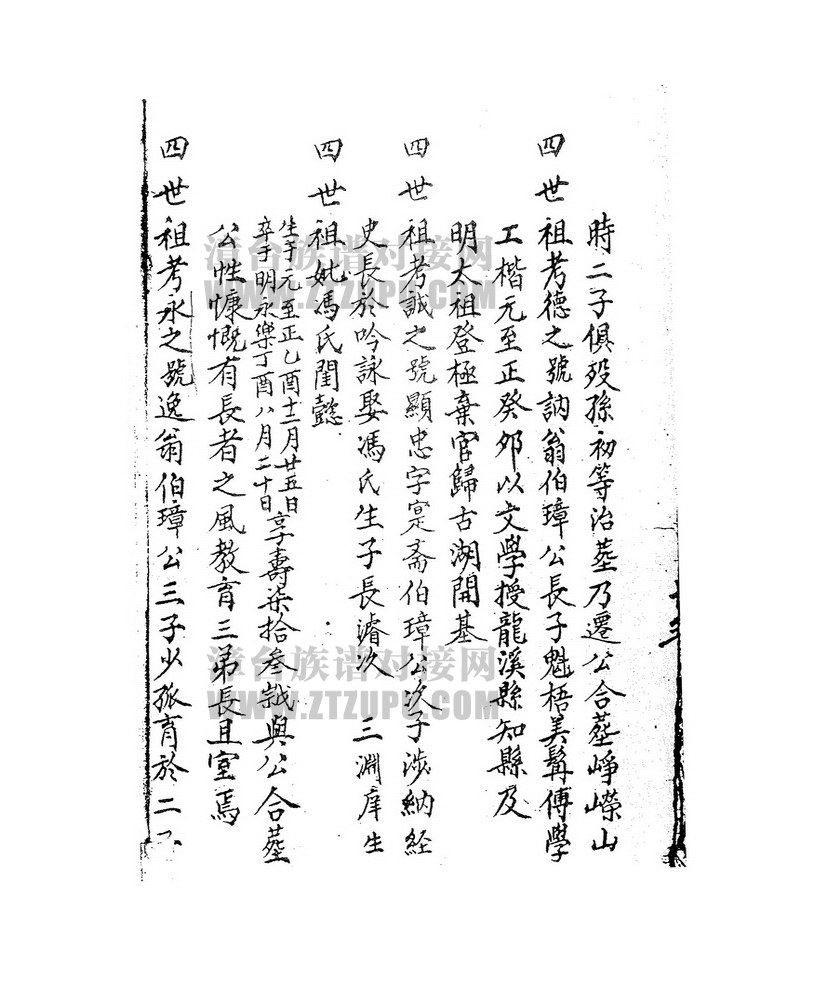 時二子俱歿孫初等治塟乃遷公合塟崢嶸山
四世祖考德之號訥翁伯璋公長子魁梧美髯傅學
工楷元至正癸夘以文學授龍溪縣知縣及
明太祖登極棄官歸古湖開基
四世祖考誠之號顯忠字寔斋伯璋公次子涉納経
史長於吟詠娶馮氏生子長濬次 三淵庠生
四世祖妣馮氏閨懿
生于元至正乙酉十二月廿五日
卒于明永樂丁酉八月二十日
享壽柒拾叁嵗與公合塟
公性慷慨有長者之風教育三弟長且室焉
四世祖考永之號逸翁伯璋公三子少孤育於二
漳台族谱对接网
WWW.ZTZUPU.COM
漳台族谱对接网
WWW.ZTZUPU.COM